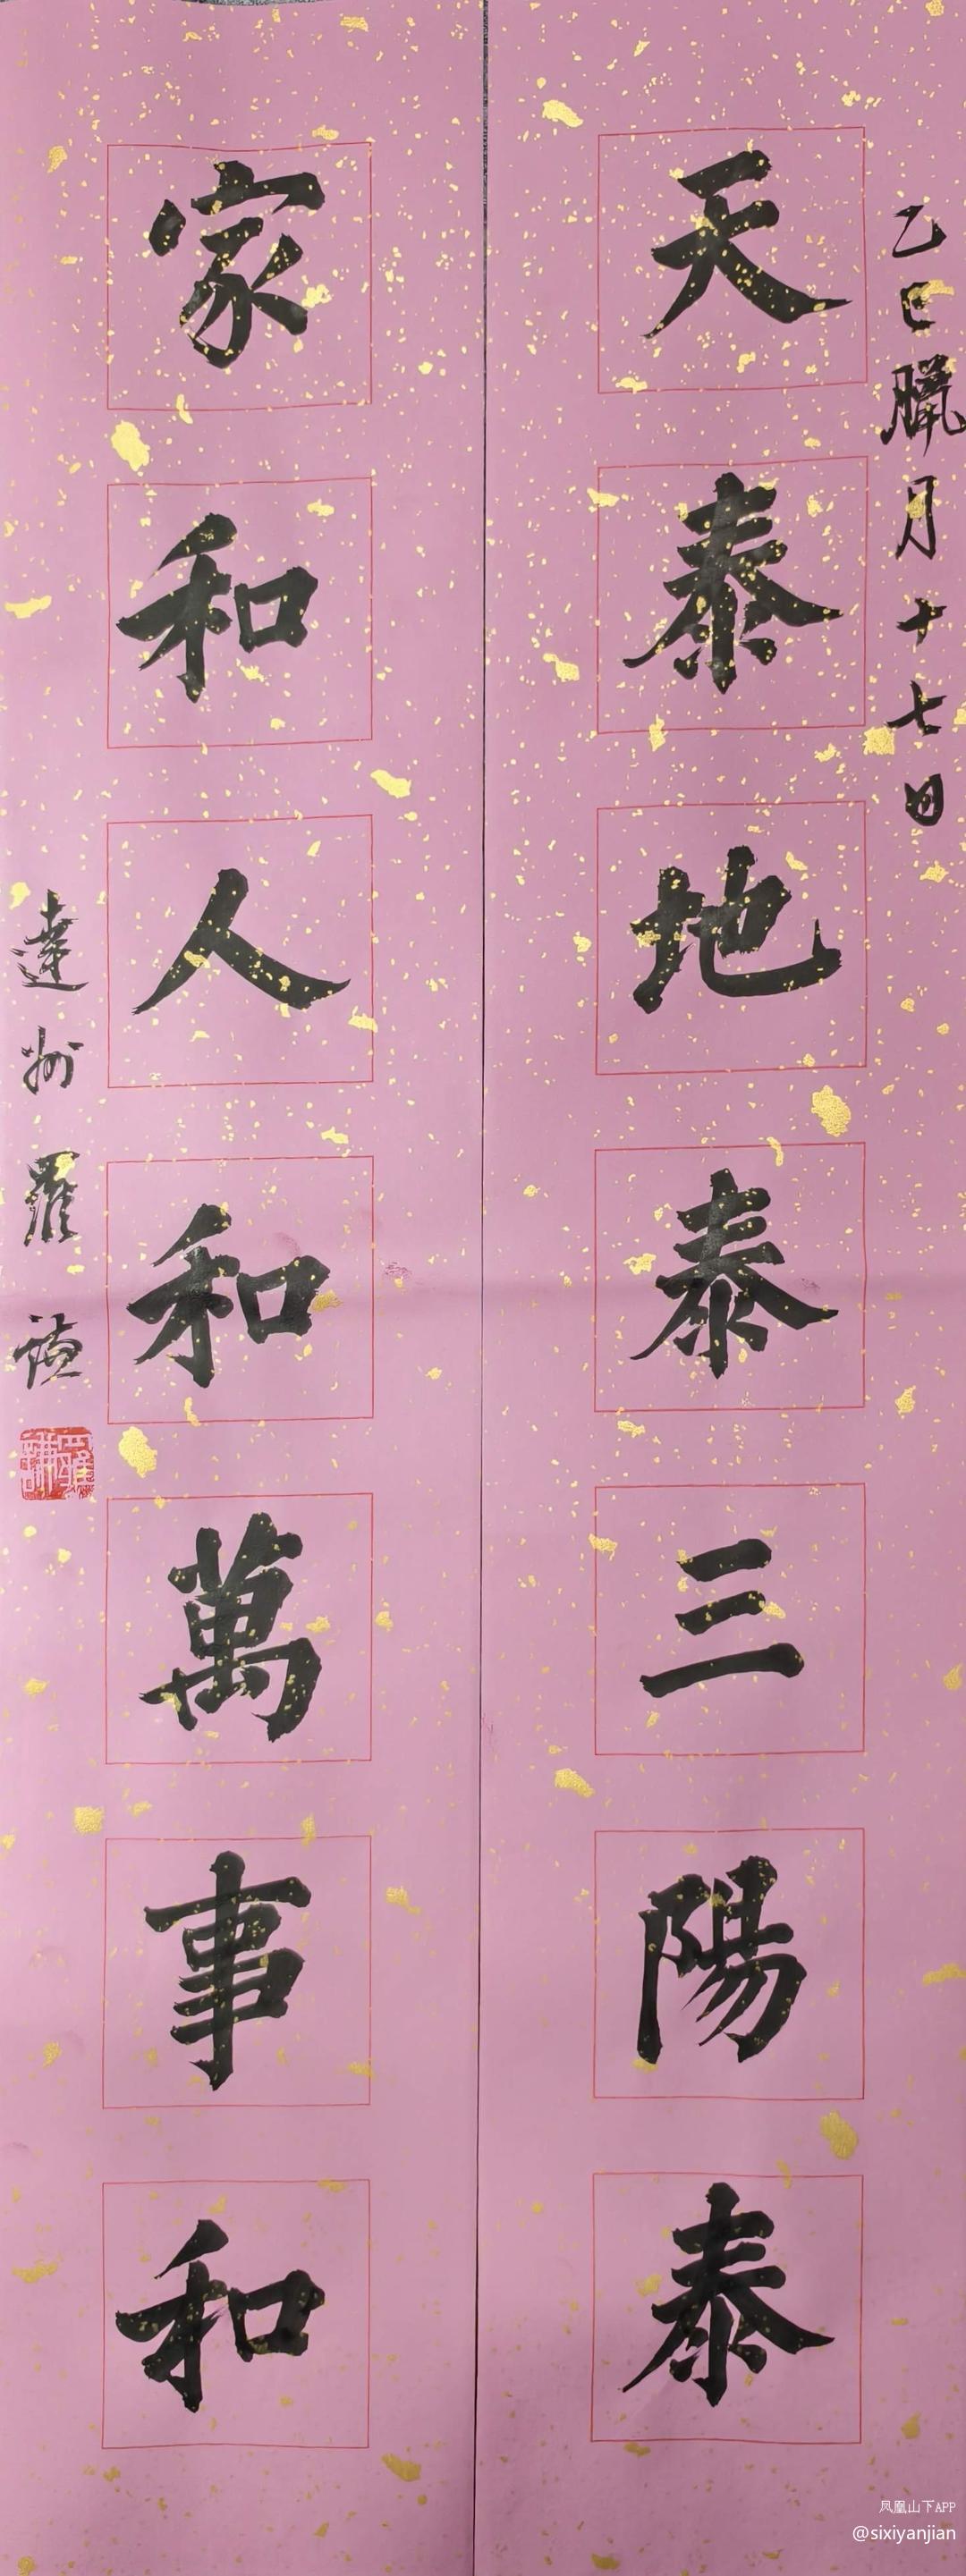 乙巳臘月十七日
天泰地泰三陽泰
家和人和萬事和
達州羅謙
凤凰山下APP
@sixiyanjian